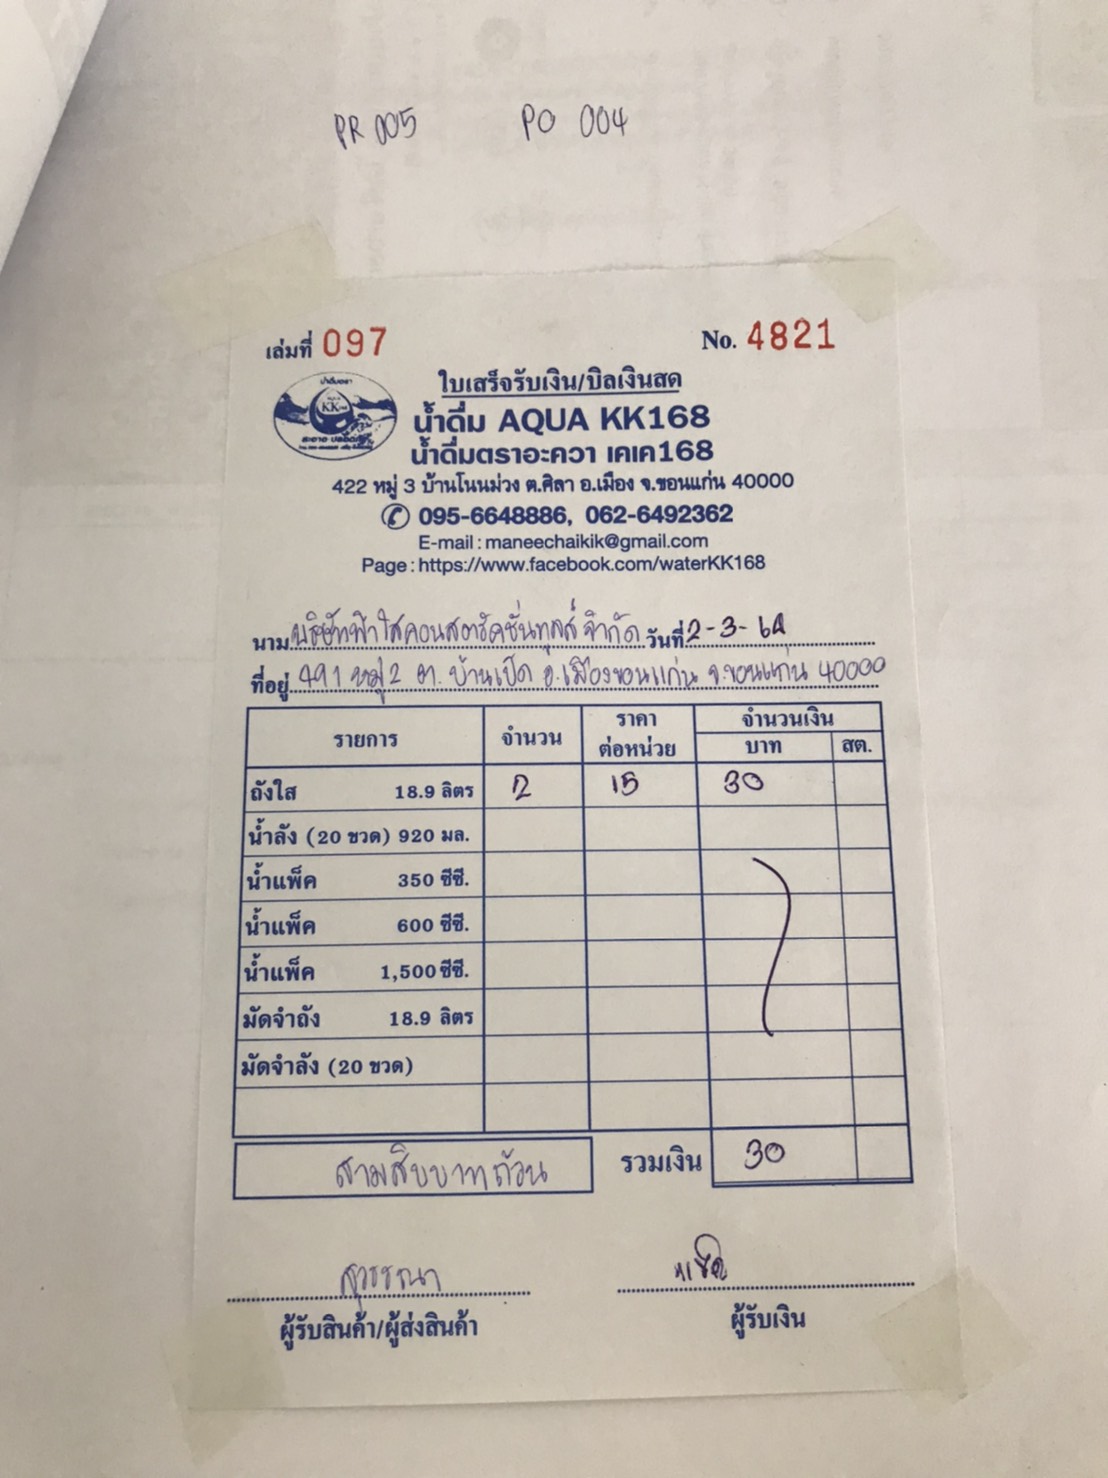 PR 005 PO 004
เล่มที่ 097 No. 4821
ใบเสร็จรับเงิน/บิลเงินสด
น้ำดื่ม AQUA KK168
น้ำดื่มตราอะควา เคเค168
422 หมู่ 3 บ้านโนนม่วง ต.ศิลา อ.เมือง จ.ขอนแก่น 40000
095-6648886, 062-6492362
E-mail : maneechaikik@gmail.com
Page : https://www.facebook.com/waterKK168
นาม บริษัทฟ้าใสคอนสตรัคชั่นทูลส์ จำกัด วันที่ 2-3-64
ที่อยู่ 491 หมู่ 2 ต. บ้านเป็ด อ.เมืองขอนแก่น จ.ขอนแก่น 40000
รายการ จำนวน ราคาต่อหน่วย จำนวนเงิน
บาท สต.
ถังใส 18.9 ลิตร 2 15 30
น้ำลัง (20 ขวด) 920 มล.
น้ำแพ็ค 350 ซีซี.
น้ำแพ็ค 600 ซีซี.
น้ำแพ็ค 1,500 ซีซี.
มัดจำถัง 18.9 ลิตร
มัดจำลัง (20 ขวด)
สามสิบบาทถ้วน รวมเงิน 30
สุวรรณา
ผู้รับสินค้า/ผู้ส่งสินค้า ผู้รับเงิน